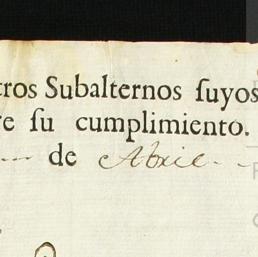 tros Subalternos ſuyos
re ſu cumplimiento.
de Abril